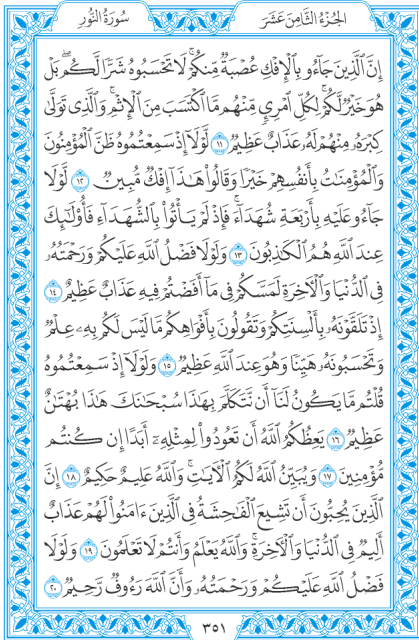 سُورَةُ النُّورِ
الجُزْءُ الثَّامِنَ عَشَرَ
إِنَّ ٱلَّذِينَ جَآءُو بِٱلْإِفْكِ عُصْبَةٌ مِّنكُمْ ۚ لَا تَحْسَبُوهُ شَرًّا لَّكُم ۖ بَلْ
هُوَ خَيْرٌ لَّكُمْ ۚ لِكُلِّ ٱمْرِئٍ مِّنْهُم مَّا ٱكْتَسَبَ مِنَ ٱلْإِثْمِ ۚ وَٱلَّذِى تَوَلَّىٰ
كِبْرَهُۥ مِنْهُمْ لَهُۥ عَذَابٌ عَظِيمٌ ١١ لَّوْلَآ إِذْ سَمِعْتُمُوهُ ظَنَّ ٱلْمُؤْمِنُونَ
وَٱلْمُؤْمِنَٰتُ بِأَنفُسِهِمْ خَيْرًا وَقَالُوا۟ هَٰذَآ إِفْكٌ مُّبِينٌ ١٢ لَّوْلَا
جَآءُو عَلَيْهِ بِأَرْبَعَةِ شُهَدَآءَ ۚ فَإِذْ لَمْ يَأْتُوا۟ بِٱلشُّهَدَآءِ فَأُو۟لَٰٓئِكَ
عِندَ ٱللَّهِ هُمُ ٱلْكَٰذِبُونَ ١٣ وَلَوْلَا فَضْلُ ٱللَّهِ عَلَيْكُمْ وَرَحْمَتُهُۥ
فِى ٱلدُّنْيَا وَٱلْءَاخِرَةِ لَمَسَّكُمْ فِى مَآ أَفَضْتُمْ فِيهِ عَذَابٌ عَظِيمٌ ١٤
إِذْ تَلَقَّوْنَهُۥ بِأَلْسِنَتِكُمْ وَتَقُولُونَ بِأَفْوَاهِكُم مَّا لَيْسَ لَكُم بِهِۦ عِلْمٌ
وَتَحْسَبُونَهُۥ هَيِّنًا وَهُوَ عِندَ ٱللَّهِ عَظِيمٌ ١٥ وَلَوْلَآ إِذْ سَمِعْتُمُوهُ
قُلْتُم مَّا يَكُونُ لَنَآ أَن نَّتَكَلَّمَ بِهَٰذَا سُبْحَٰنَكَ هَٰذَا بُهْتَٰنٌ
عَظِيمٌ ١٦ يَعِظُكُمُ ٱللَّهُ أَن تَعُودُوا۟ لِمِثْلِهِۦٓ أَبَدًا إِن كُنتُم
مُّؤْمِنِينَ ١٧ وَيُبَيِّنُ ٱللَّهُ لَكُمُ ٱلْءَايَٰتِ ۚ وَٱللَّهُ عَلِيمٌ حَكِيمٌ ١٨ إِنَّ
ٱلَّذِينَ يُحِبُّونَ أَن تَشِيعَ ٱلْفَٰحِشَةُ فِى ٱلَّذِينَ ءَامَنُوا۟ لَهُمْ عَذَابٌ
أَلِيمٌ فِى ٱلدُّنْيَا وَٱلْءَاخِرَةِ ۚ وَٱللَّهُ يَعْلَمُ وَأَنتُمْ لَا تَعْلَمُونَ ١٩ وَلَوْلَا
فَضْلُ ٱللَّهِ عَلَيْكُمْ وَرَحْمَتُهُۥ وَأَنَّ ٱللَّهَ رَءُوفٌ رَّحِيمٌ ٢٠
٣٥١